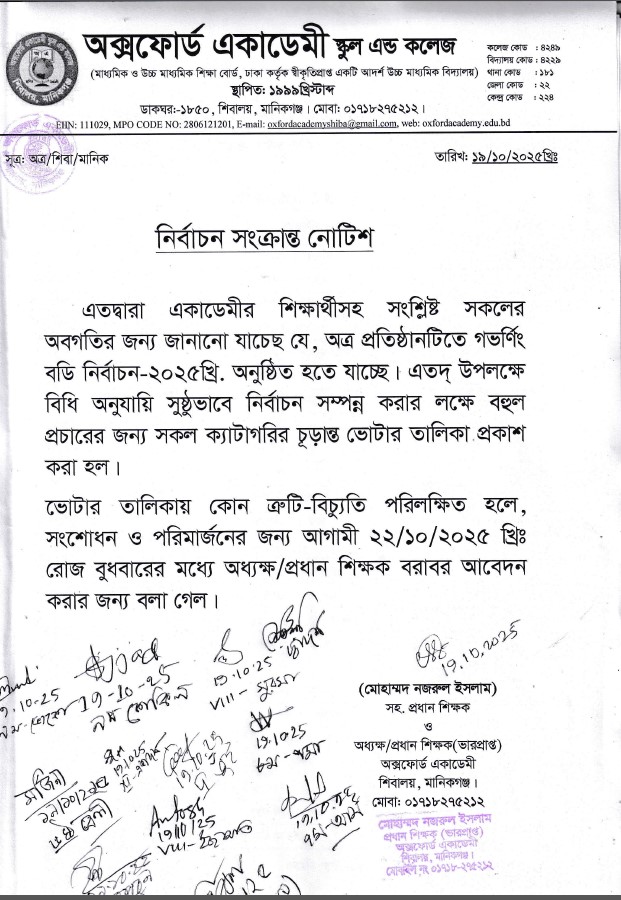 অক্সফোর্ড একাডেমী স্কুল এন্ড কলেজ
(মাধ্যমিক ও উচ্চ মাধ্যমিক শিক্ষা বোর্ড, ঢাকা কর্তৃক স্বীকৃতিপ্রাপ্ত একটি আদর্শ উচ্চ মাধ্যমিক বিদ্যালয়)
স্থাপিত: ১৯৯৯খ্রিস্টাব্দ
ডাকঘর:-১৮৫০, শিবালয়, মানিকগঞ্জ। মোবা: ০১৭১৮২৭৫২১২।
কলেজ কোড : ৪২৪৯
বিদ্যালয় কোড : ৪২২৯
থানা কোড : ১৮১
জেলা কোড : ২২
কেন্দ্র কোড : ২২৪
EIIN: 111029, MPO CODE NO: 2806121201, E-mail: oxfordacademyshiba@gmail.com, web: oxfordacademy.edu.bd
সূত্র: অত্র/শিবা/মানিক
তারিখ: ১৯/১০/২০২৫খ্রিঃ
নির্বাচন সংক্রান্ত নোটিশ
এতদ্বারা একাডেমীর শিক্ষার্থীসহ সংশ্লিষ্ট সকলের
অবগতির জন্য জানানো যাচেছ যে, অত্র প্রতিষ্ঠানটিতে গভর্ণিং
বডি নির্বাচন-২০২৫খ্রি. অনুষ্ঠিত হতে যাচ্ছে। এতদ্ উপলক্ষে
বিধি অনুযায়ি সুষ্ঠুভাবে নির্বাচন সম্পন্ন করার লক্ষে বহুল
প্রচারের জন্য সকল ক্যাটাগরির চূড়ান্ত ভোটার তালিকা প্রকাশ
করা হল।
ভোটার তালিকায় কোন ত্রুটি-বিচ্যুতি পরিলক্ষিত হলে,
সংশোধন ও পরিমার্জনের জন্য আগামী ২২/১০/২০২৫ খ্রিঃ
রোজ বুধবারের মধ্যে অধ্যক্ষ/প্রধান শিক্ষক বরাবর আবেদন
করার জন্য বলা গেল।
19.10.2025
(মোহাম্মদ নজরুল ইসলাম)
সহ. প্রধান শিক্ষক
ও
অধ্যক্ষ/প্রধান শিক্ষক(ভারপ্রাপ্ত)
অক্সফোর্ড একাডেমী
শিবালয়, মানিকগঞ্জ।
মোবা: ০১৭১৮২৭৫২১২
মোহাম্মদ নজরুল ইসলাম
প্রধান শিক্ষক (ভারপ্রাপ্ত)
অক্সফোর্ড একাডেমী
শিবালয়, মানিকগঞ্জ।
মোবাইল নং ০১৭১৮-২৭৫২১২
19-10-25
19.10.25
VIII-
19.10.25
19/10/25
VIII-